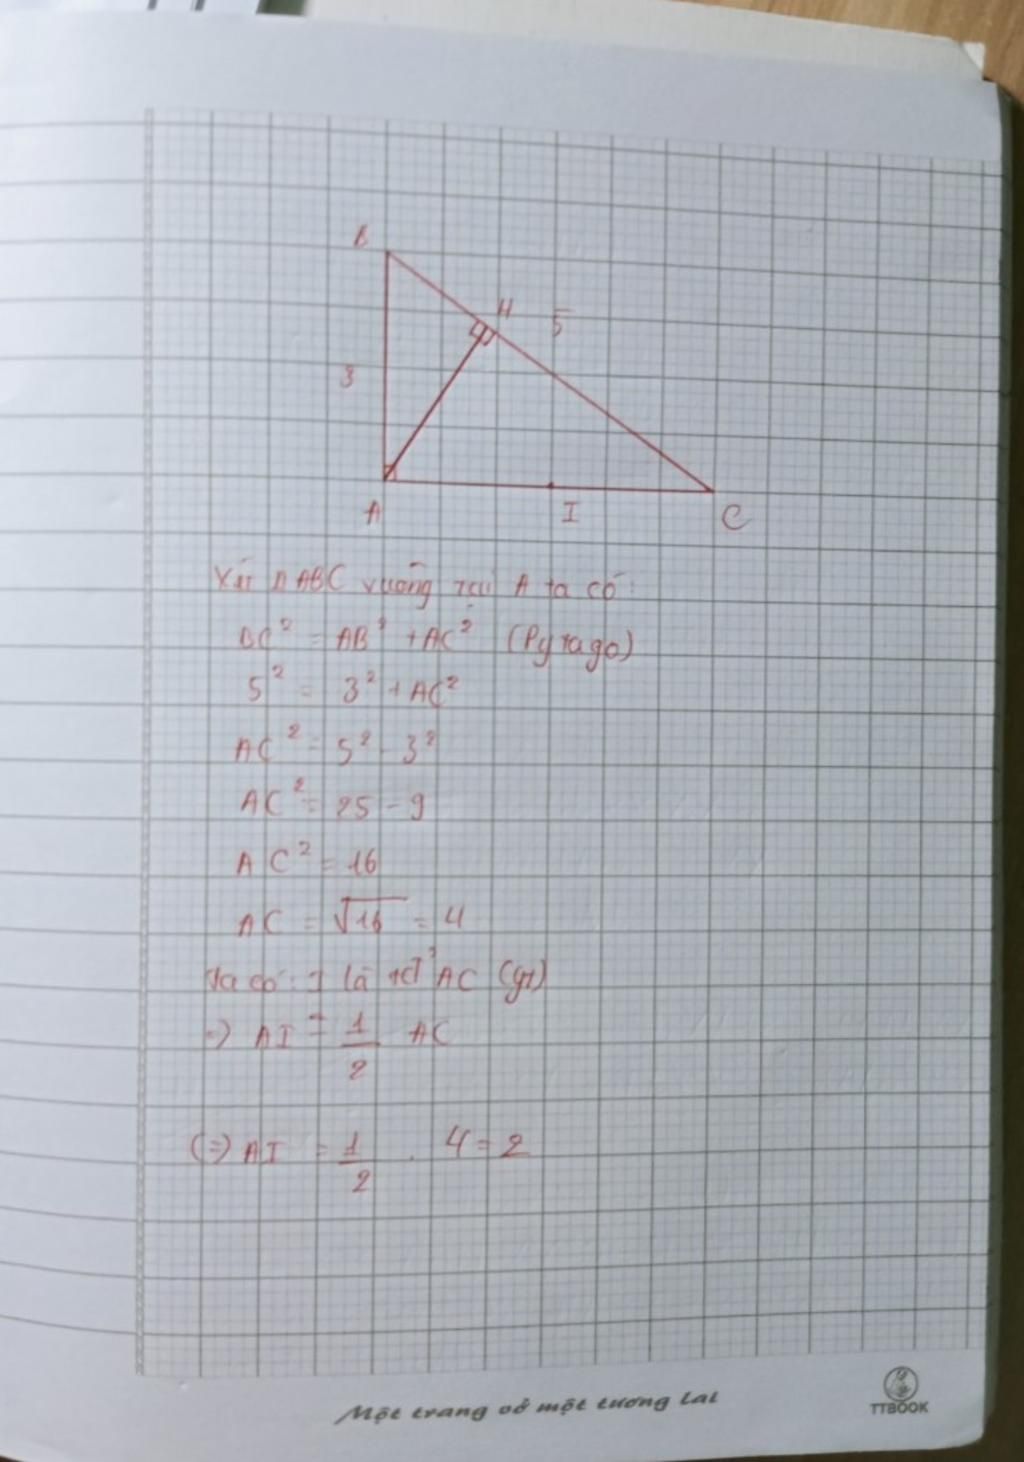 B
H
5
3
A
I
C
Xét ΔABC vuông tại A ta có:
BC² = AB² + AC² (Pytago)
5² = 3² + AC²
AC² = 5² - 3²
AC² = 25 - 9
AC² = 16
AC = √16 = 4
Ta có: I là tđ AC (gt)
=> AI = 1/2 AC
(=) AI = 1/2 . 4 = 2
Một trang vở một tương lai
TTBOOK